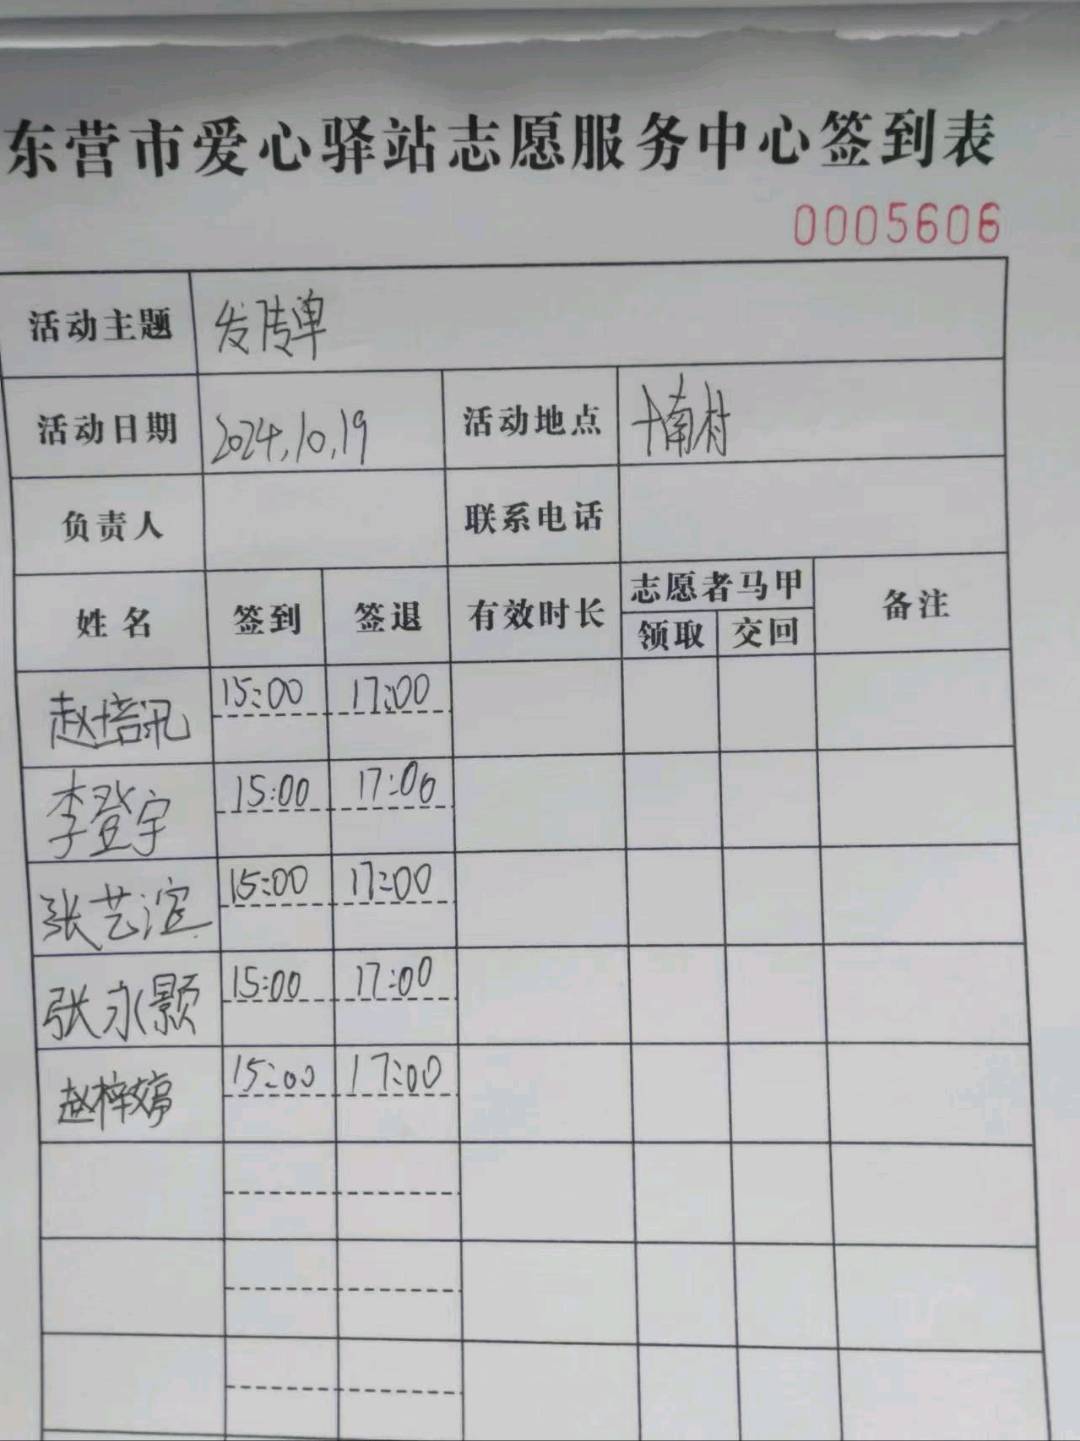 东营市爱心驿站志愿服务中心签到表
0005606
活动主题 发传单
活动日期 2024.10.19 活动地点 十南村
负责人 联系电话
姓名 签到 签退 有效时长 志愿者马甲 备注
领取 交回
赵培讯 15:00 17:00
李登宇 15:00 17:00
张艺渲 15:00 17:00
张永颢 15:00 17:00
赵梓婷 15:00 17:00